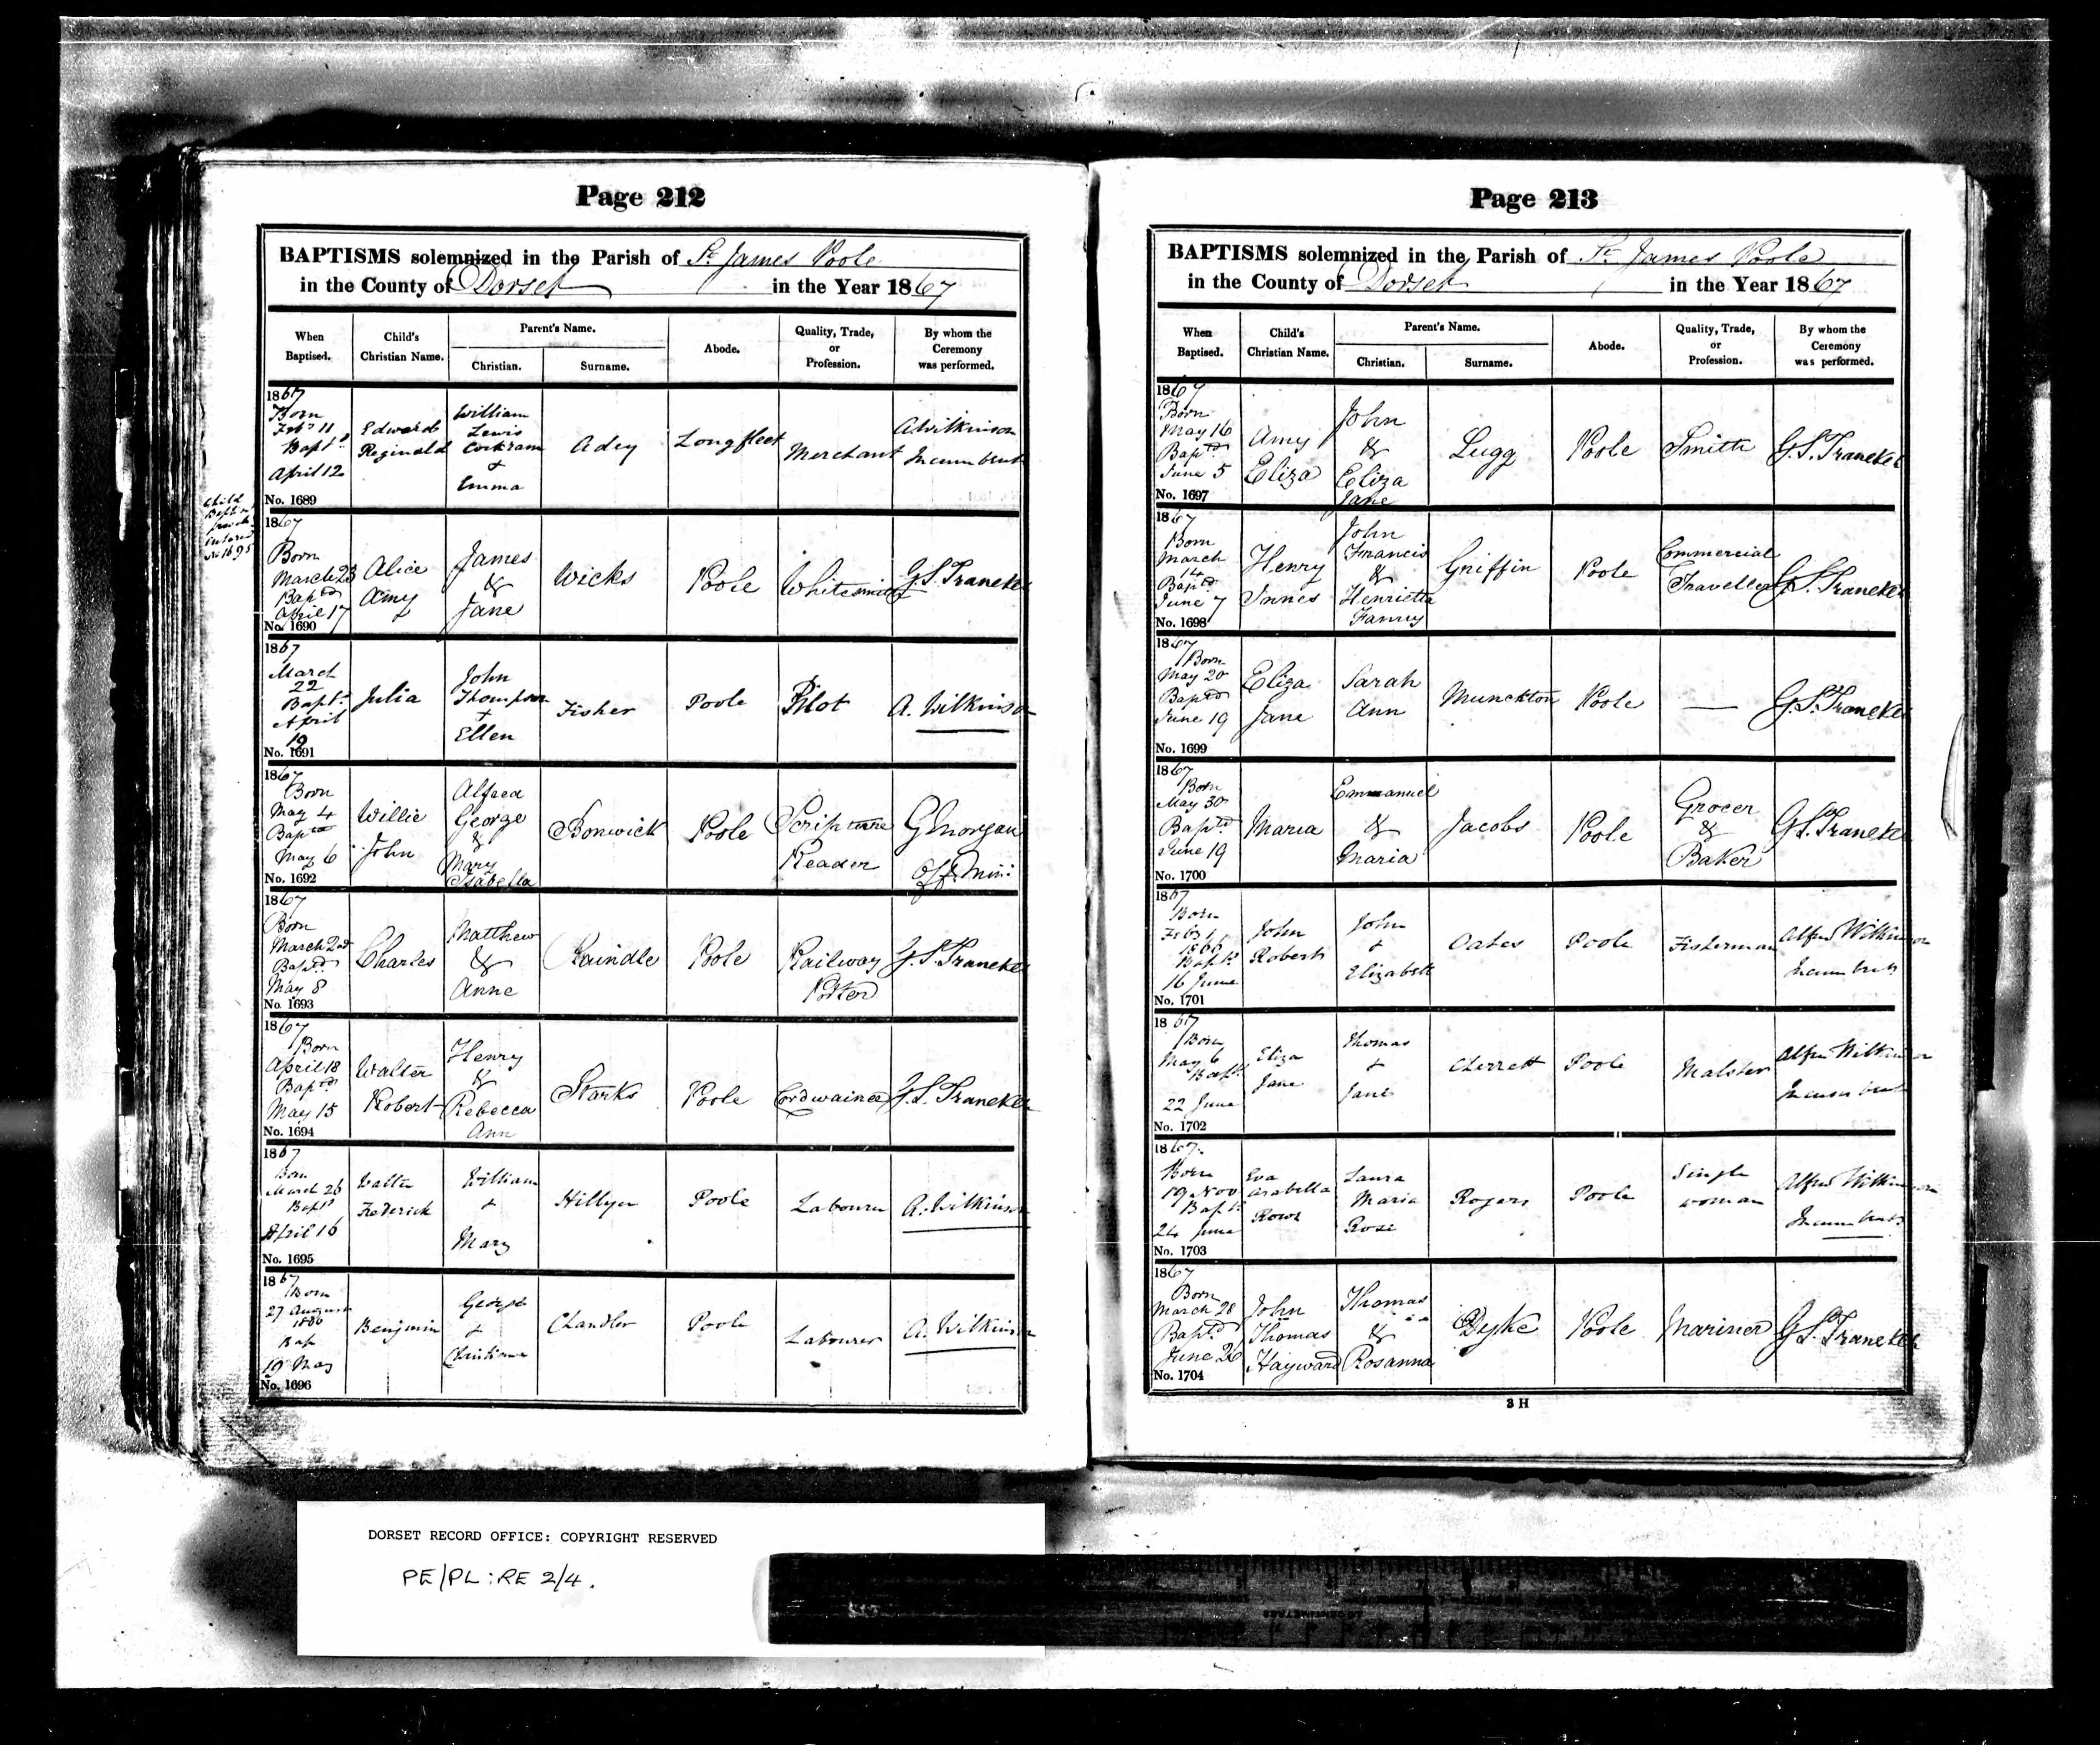 Page 212
BAPTISMS solemnized in the Parish of St James Poole
in the County of Dorset in the Year 1867
When Baptised.
Child's Christian Name.
Parent's Name.
Christian.
Surname.
Abode.
Quality, Trade, or Profession.
By whom the Ceremony was performed.
1867
Born
Feby 11
Baptd
April 12
No. 1689
Edward
Reginald
William
Lewis
Cockram
+
Emma
Adey
Longfleet
Merchant
A Wilkinson
Incumbent
Child
entered
No 1695
1867
Born
March 23
Baptd
April 17
No. 1690
Alice
Amy
James
&
Jane
Wicks
Poole
Whitesmith
1867
March
22
Bapt.
April
19
No. 1691
Julia
John
Thompson
+
Ellen
Fisher
Poole
Pilot
A. Wilkinson
1867
Born
May 4
Baptd
May 6
No. 1692
Willie
John
Alfred
George
&
Mary
Isabella
Bonwick
Poole
Scripture
Reader
G Morgan
Off. Min:
1867
Born
March 2nd
Baptd
May 8
No. 1693
Charles
Matthew
&
Anne
Poole
Railway
Porter
1867
Born
April 18
Baptd
May 15
No. 1694
Walter
Robert
Henry
&
Rebecca
Ann
Starks
Poole
Cordwainer
1867
Born
March 26
Baptd
April 16
No. 1695
Walter
Frederick
William
+
Mary
Hillyer
Poole
Labourer
A. Wilkinson
1867
Born
27 August
1866
Bap
19 May
No. 1696
Benjamin
George
+
Christiana
Chandler
Poole
Labourer
A. Wilkinson
Page 213
BAPTISMS solemnized in the Parish of St James Poole
in the County of Dorset in the Year 1867
When Baptised.
Child's Christian Name.
Parent's Name.
Christian.
Surname.
Abode.
Quality, Trade, or Profession.
By whom the Ceremony was performed.
1867
Born
May 16
Baptd
June 5
No. 1697
Amy
Eliza
John
&
Eliza
Jane
Lugg
Poole
Smith
1867
Born
March
14
Baptd
June 7
No. 1698
Henry
Innes
John
Francis
&
Henrietta
Fanny
Griffin
Poole
Commercial
Traveller
1867
Born
May 20
Baptd
June 19
No. 1699
Eliza
Jane
Sarah
Ann
Munckton
Poole
—
1867
Born
May 30
Baptd
June 19
No. 1700
Maria
Emmanuel
&
Maria
Jacobs
Poole
Grocer
&
Baker
1867
Born
Feb 1
1866
Bapt
16 June
No. 1701
John
Robert
John
+
Elizabeth
Oates
Poole
Fisherman
Alfred Wilkinson
Incumbent
1867
Born
May 6
Bapt
22 June
No. 1702
Eliza
Jane
Thomas
+
Jane
Cherrett
Poole
Malster
Alfred Wilkinson
Incumbent
1867
Born
19 Nov
Bapt
24 June
No. 1703
Eva
Arabella
Laura
Maria
Rose
Rogers
Poole
Single
woman
Alfred Wilkinson
Incumbent
1867
Born
March 28
Baptd
June 26
No. 1704
John
Thomas
Hayward
Thomas
&
Rosanna
Dyke
Poole
Mariner
3 H
DORSET RECORD OFFICE: COPYRIGHT RESERVED
PE/PL:RE 2/4.